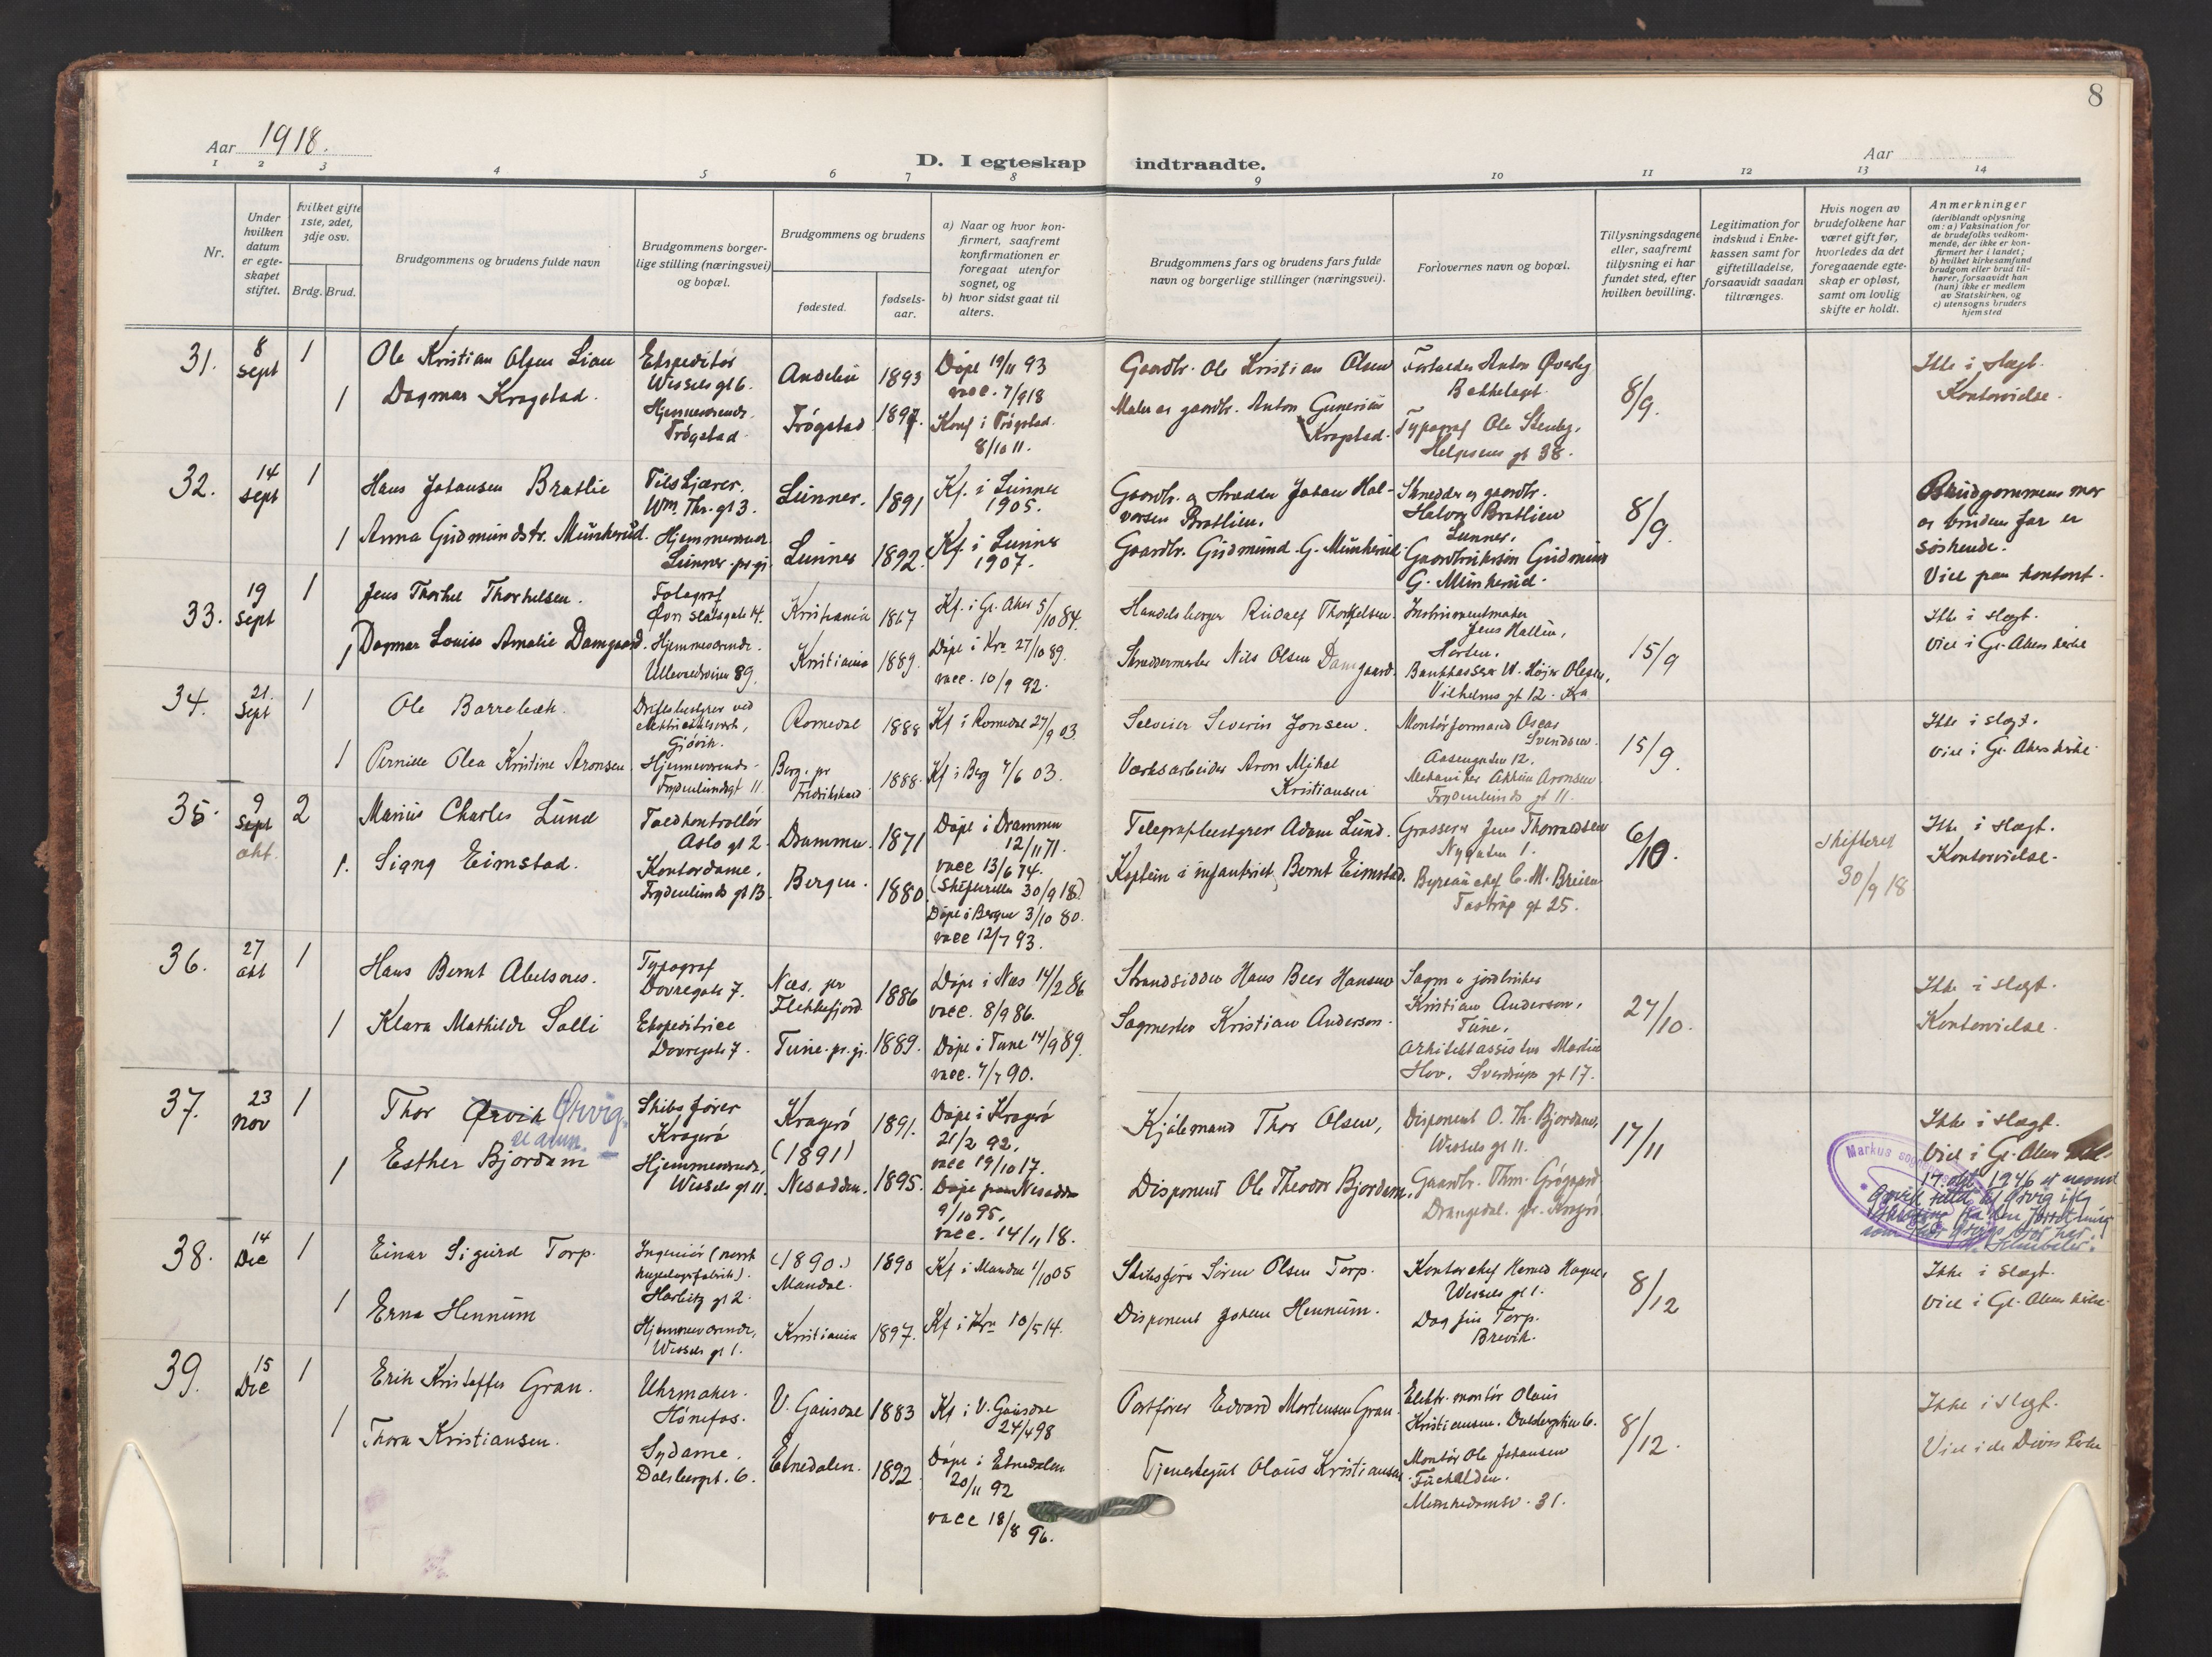 8
Aar 1918.
D. I egteskap indtraadte.
Aar
1 2 3 4 5 6 7 8 9 10 11 12 13 14
Nr.
Under hvilken datum er egteskapet stiftet.
hvilket gifte 1ste, 2det, 3dje osv.
Brdg. Brud.
Brudgommens og brudens fulde navn
Brudgommens borgerlige stilling (næringsvei) og bopæl.
Brudgommens og brudens
fødested.
fødselsaar.
a) Naar og hvor konfirmert, saafremt konfirmationen er foregaat utenfor sognet, og
b) hvor sidst gaat til alters.
Brudgommens fars og brudens fars fulde navn og borgerlige stillinger (næringsvei).
Forlovernes navn og bopæl.
Tillysningsdagene eller, saafremt tillysning ei har fundet sted, efter hvilken bevilling.
Legitimation for indskud i Enkekassen samt for giftetilladelse, forsaavidt saadan tiltrænges.
Hvis nogen av brudefolkene har været gift før, hvorledes da det foregaaende egteskap er opløst, samt om lovlig skifte er holdt.
Anmerkninger
(deriblandt oplysning om: a) Vaksination for de brudefolks vedkommende, der ikke er konfirmert her i landet;
b) hvilket kirkesamfund brudgom eller brud tilhører, forsaavidt han (hun) ikke er medlem av Statskirken, og
c) utensogns bruders hjemsted
31. 8 Sept 1 Ole Kristian Olsen Lian
Ekspeditør
Wessels gt 6.
1893
Døpt 19/11 93
vacc. 7/9 18
Gaardbr. Ole Kristian Olsen
Bestyrer Anton Øverby
Bekkelaget
8/9.
Ikke i slegt.
Kontorvielse.
1 Dagmar Krogstad.
Hjemmeværende.
Trøgstad.
Trøgstad 1897.
Konf i Trøgstad.
8/10 11.
Maler og gaardbr. Anton Gunerius
Krogstad.
Typograf Ole Stenby,
Helgesens gt 38.
32. 14 Sept 1 Hans Johansen Bratlie
Wm. Thr. gt 3.
Lunner. 1891
Kf. i Lunner
1905.
Gaardbr. og skrædder Johan Halvorsen Bratlien.
Skrædder og gaardbr.
Halvor Bratlien
Lunner.
8/9.
Brudgommens mor
og brudens far er
søskende.
Viet paa kontoret.
1 Anna Gudmundsdtr. Munkerud.
Hjemmeværende
Lunner pr gi.
Lunner 1892.
Kf. i Lunner
1907.
Gaardbr. Gudmund G. Munkerud
Gudmund
G. Munkerud.
33. 19 Sept 1 Jens Thorkel Thorkelsen.
Fotograf
Øvre Slotsgate 14.
Kristiania 1867
Kf. i Gl. Aker 5/10 84.
Handelsborger Rudolf Thorkelsen.
Instrumentmaker
Jens Hallin,
Horten.
15/9
Ikke i slegt.
Viet i Gl. Akers kirke
1 Dagmar Louise Amalie Damgaard.
Hjemmeværende.
Ullevaalsveien 89.
Kristiania 1889.
Døpt i Kra 27/10 89.
vacc. 10/9 92.
Skreddermester Nils Olsen Damgaard.
Bankkasserer W. Højer Olsen,
Vilhelms gt 12. Kra
34. 21. Sept 1 Ole Børrebæk.
Driftsbestyrer ved
elektricitetsverk,
Gjøvik.
Romedal 1888
Kf i Romedal 27/9 03.
Selveier Severin Jonsen.
Montørformand Oscar
Svendsen.
Aasengaten 12.
15/9.
Ikke i slegt.
Viet i Gl. Akers kirke
1 Pernille Olea Kristine Aronsen
Hjemmeværende.
Frydenlundsgt 11.
Berg. pr
Fredrikshald 1888.
Kf i Berg 7/6 03.
Værksarbeider Aron Mikal
Kristiansen
Mekaniker Aronsen
Frydenlunds gt 11.
35. 9 Sept okt. 2 Marius Charles Lund
Toldkontrollør
Oslo gt 2.
Drammen. 1871
Døpt i Drammen
12/11 71.
vacc 13/6 74.
(Skifterellen 30/9 18.)
Telegrafbestyrer Adam Lund.
Grosserer Jens Thorvaldsen
Nygaten 1.
6/10.
Skifteret
30/9 18
Ikke i slegt.
Kontorvielse.
1. Signy Eimstad.
Kontordame.
Frydenlunds gt 13.
Bergen. 1880
Døpt i Bergen 3/10 80.
vacc 12/7 93.
Kaptein i infanteriet, Bernt Eimstad.
Byraauchef C. M. Breien
Tostrup gt 25.
36. 27 okt 1 Hans Bernt Abelsnes.
Typograf
Dovregate 7.
Nes, pr
Flekkefjord 1886
Døpt i Nes 14/2 86
vacc. 8/9 86.
Strandsidder Hans Beer Hansen
Kristian Anderson,
Tune.
27/10.
Ikke i slegt.
Kontorvielse.
1 Klara Mathilde Solli
Ekspeditrice
Dovregate 7.
Tune. pr. gi. 1889.
Døpt i Tune 14/9 89.
vacc. 7/7 90.
Sagmester Kristian Anderson.
Arkitektassistent Martin
Hov, Sverdrups gt 17.
37. 23 Nov 1 Thor Ørvik Ørvig.
se anm.
Skibsfører
Kragerø
Kragerø 1891.
(1891)
Døpt i Kragerø
21/2 92.
vacc 19/10 17.
Kjølemand Thor Olsen,
Disponent O. Th. Bjordam,
Wessels gt 11.
17/11
Ikke i slegt.
Viet i Gl. Akers
Markus sogne
17. okt. 1946
1 Esther Bjordam
Hjemmeværende,
Wessels gt 11.
Nesodden. 1895.
Døpt paa Nesodden
9/10 95.
vacc. 14/11 18.
Disponent Ole Theodor Bjordam,
Gaardbr. Thm. Grøgaard
Drangedal. pr. Kragerø
38. 14 Dec 1 Einar Sigurd Torp.
Ingeniør (norsk
kugelagerfabrik).
Harbitz gt 2.
(1890.)
Mandal. 1890
Kf i Mandal 1/10 05
Skibsfører Søren Olsen Torp.
Kontorchef
Wessels gt 1.
8/12
Ikke i slegt.
Viet i Gl. Akers kirke.
1 Erna Hennum
Hjemmeværende,
Wessels gt 1.
Kristiania 1897.
Kf i Kra 10/5 14.
Disponent Johan Hennum.
Dagfin Torp.
Brevik.
39. 15 Dec 1 Erik Kristoffer Gran.
Uhrmaker.
Hønefos.
V. Gausdal 1883
Kf i V. Gausdal
24/4 98
Postfører Edvard Mortensen Gran
Elektr. montør Olaus
Kristiansen.
8/12.
Ikke i slegt.
1 Thora Kristiansen.
Sydame.
Dalsbergst. 6.
Etnedalen. 1892
Døpt i Etnedalen
20/11 92
vacc 18/8 96.
Tjenestegut Olaus Kristiansen
Montør Ole Johansen
Munkedamsv. 31.